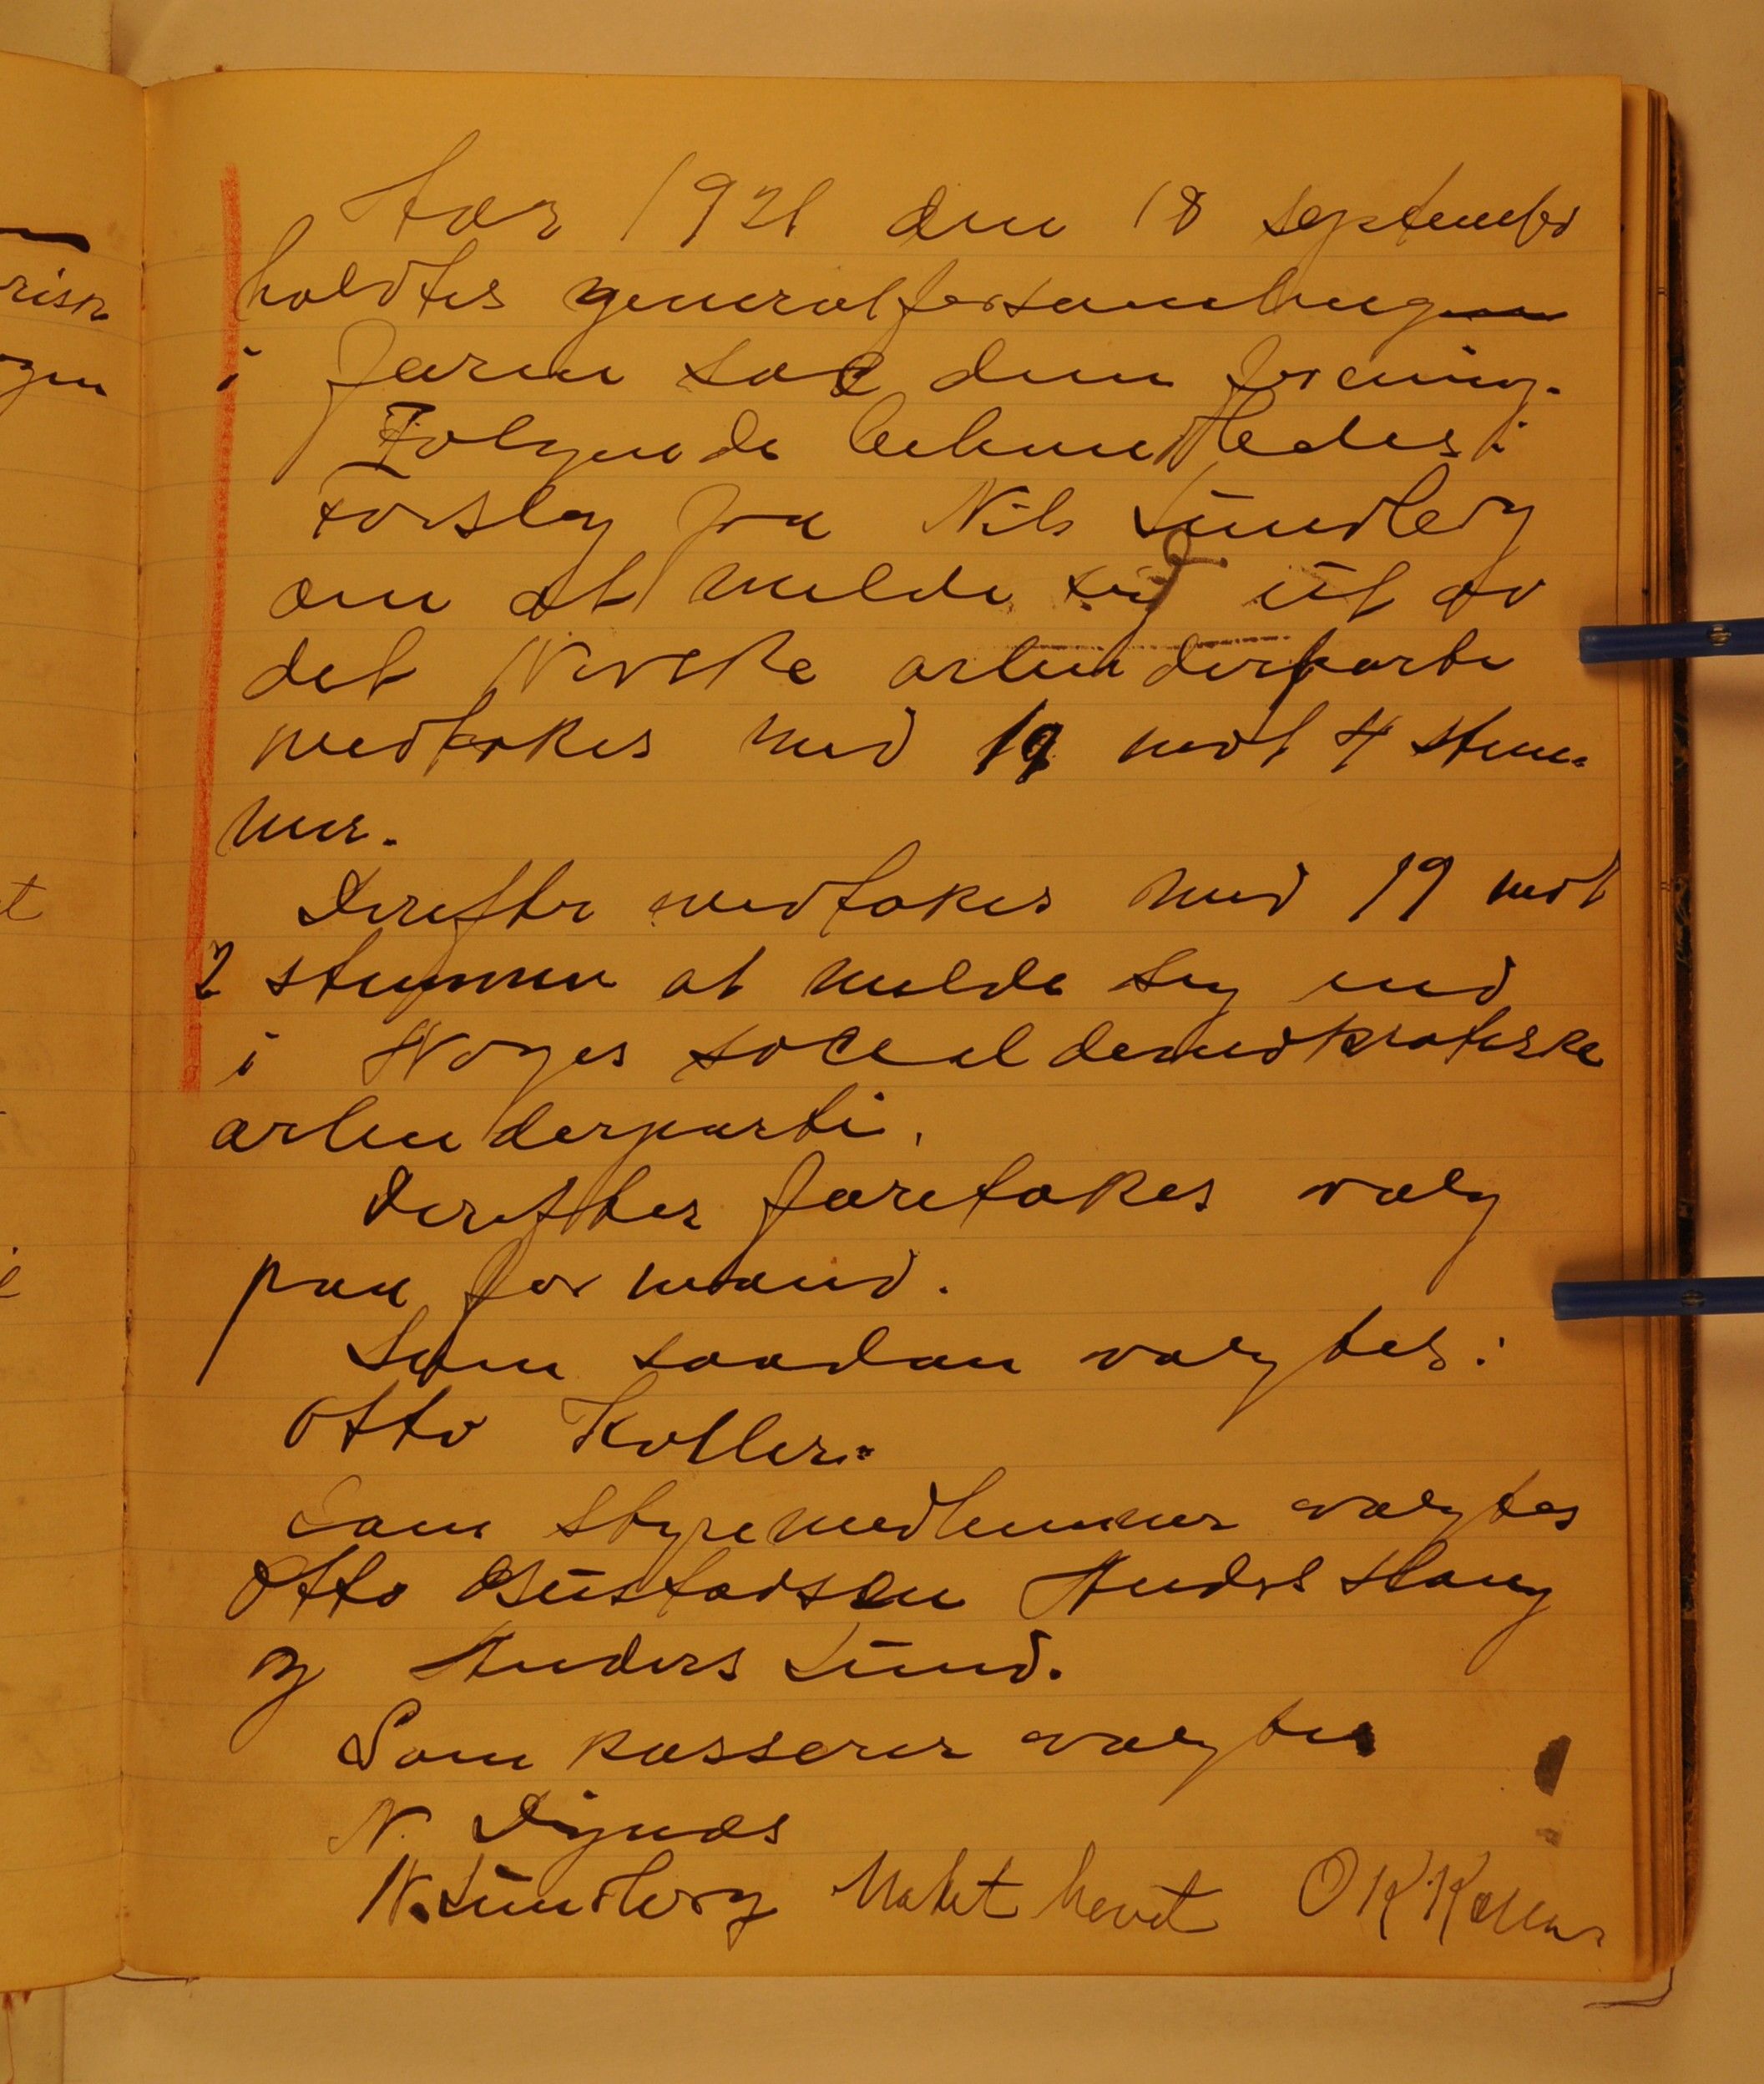 Aar 1921 den 18 septembr
holdtes generalforsamling
i Furu soc dem forening.
Følgende behandledes:
Forslag fra Nils Sundberg
om at melde sig ut av
det Norske arbeiderparti
medtokes med 19 mot 4 stem-
mer.
Derefter medtokes med 19 mot
2 stemmer at melde seg ind
i Norges socialdemokratiske
arbeiderparti.
Derefter foretokes valg
paa formand.
Som saadan valgtes:
Otto Koller.
Som styremedlemmer valgtes
Otto Gustavsen Anders Haug
og Anders Lund.
Som kasserer valgtes
N.
N. Sundberg Møtet hevet O K Koller
risk
gen
t